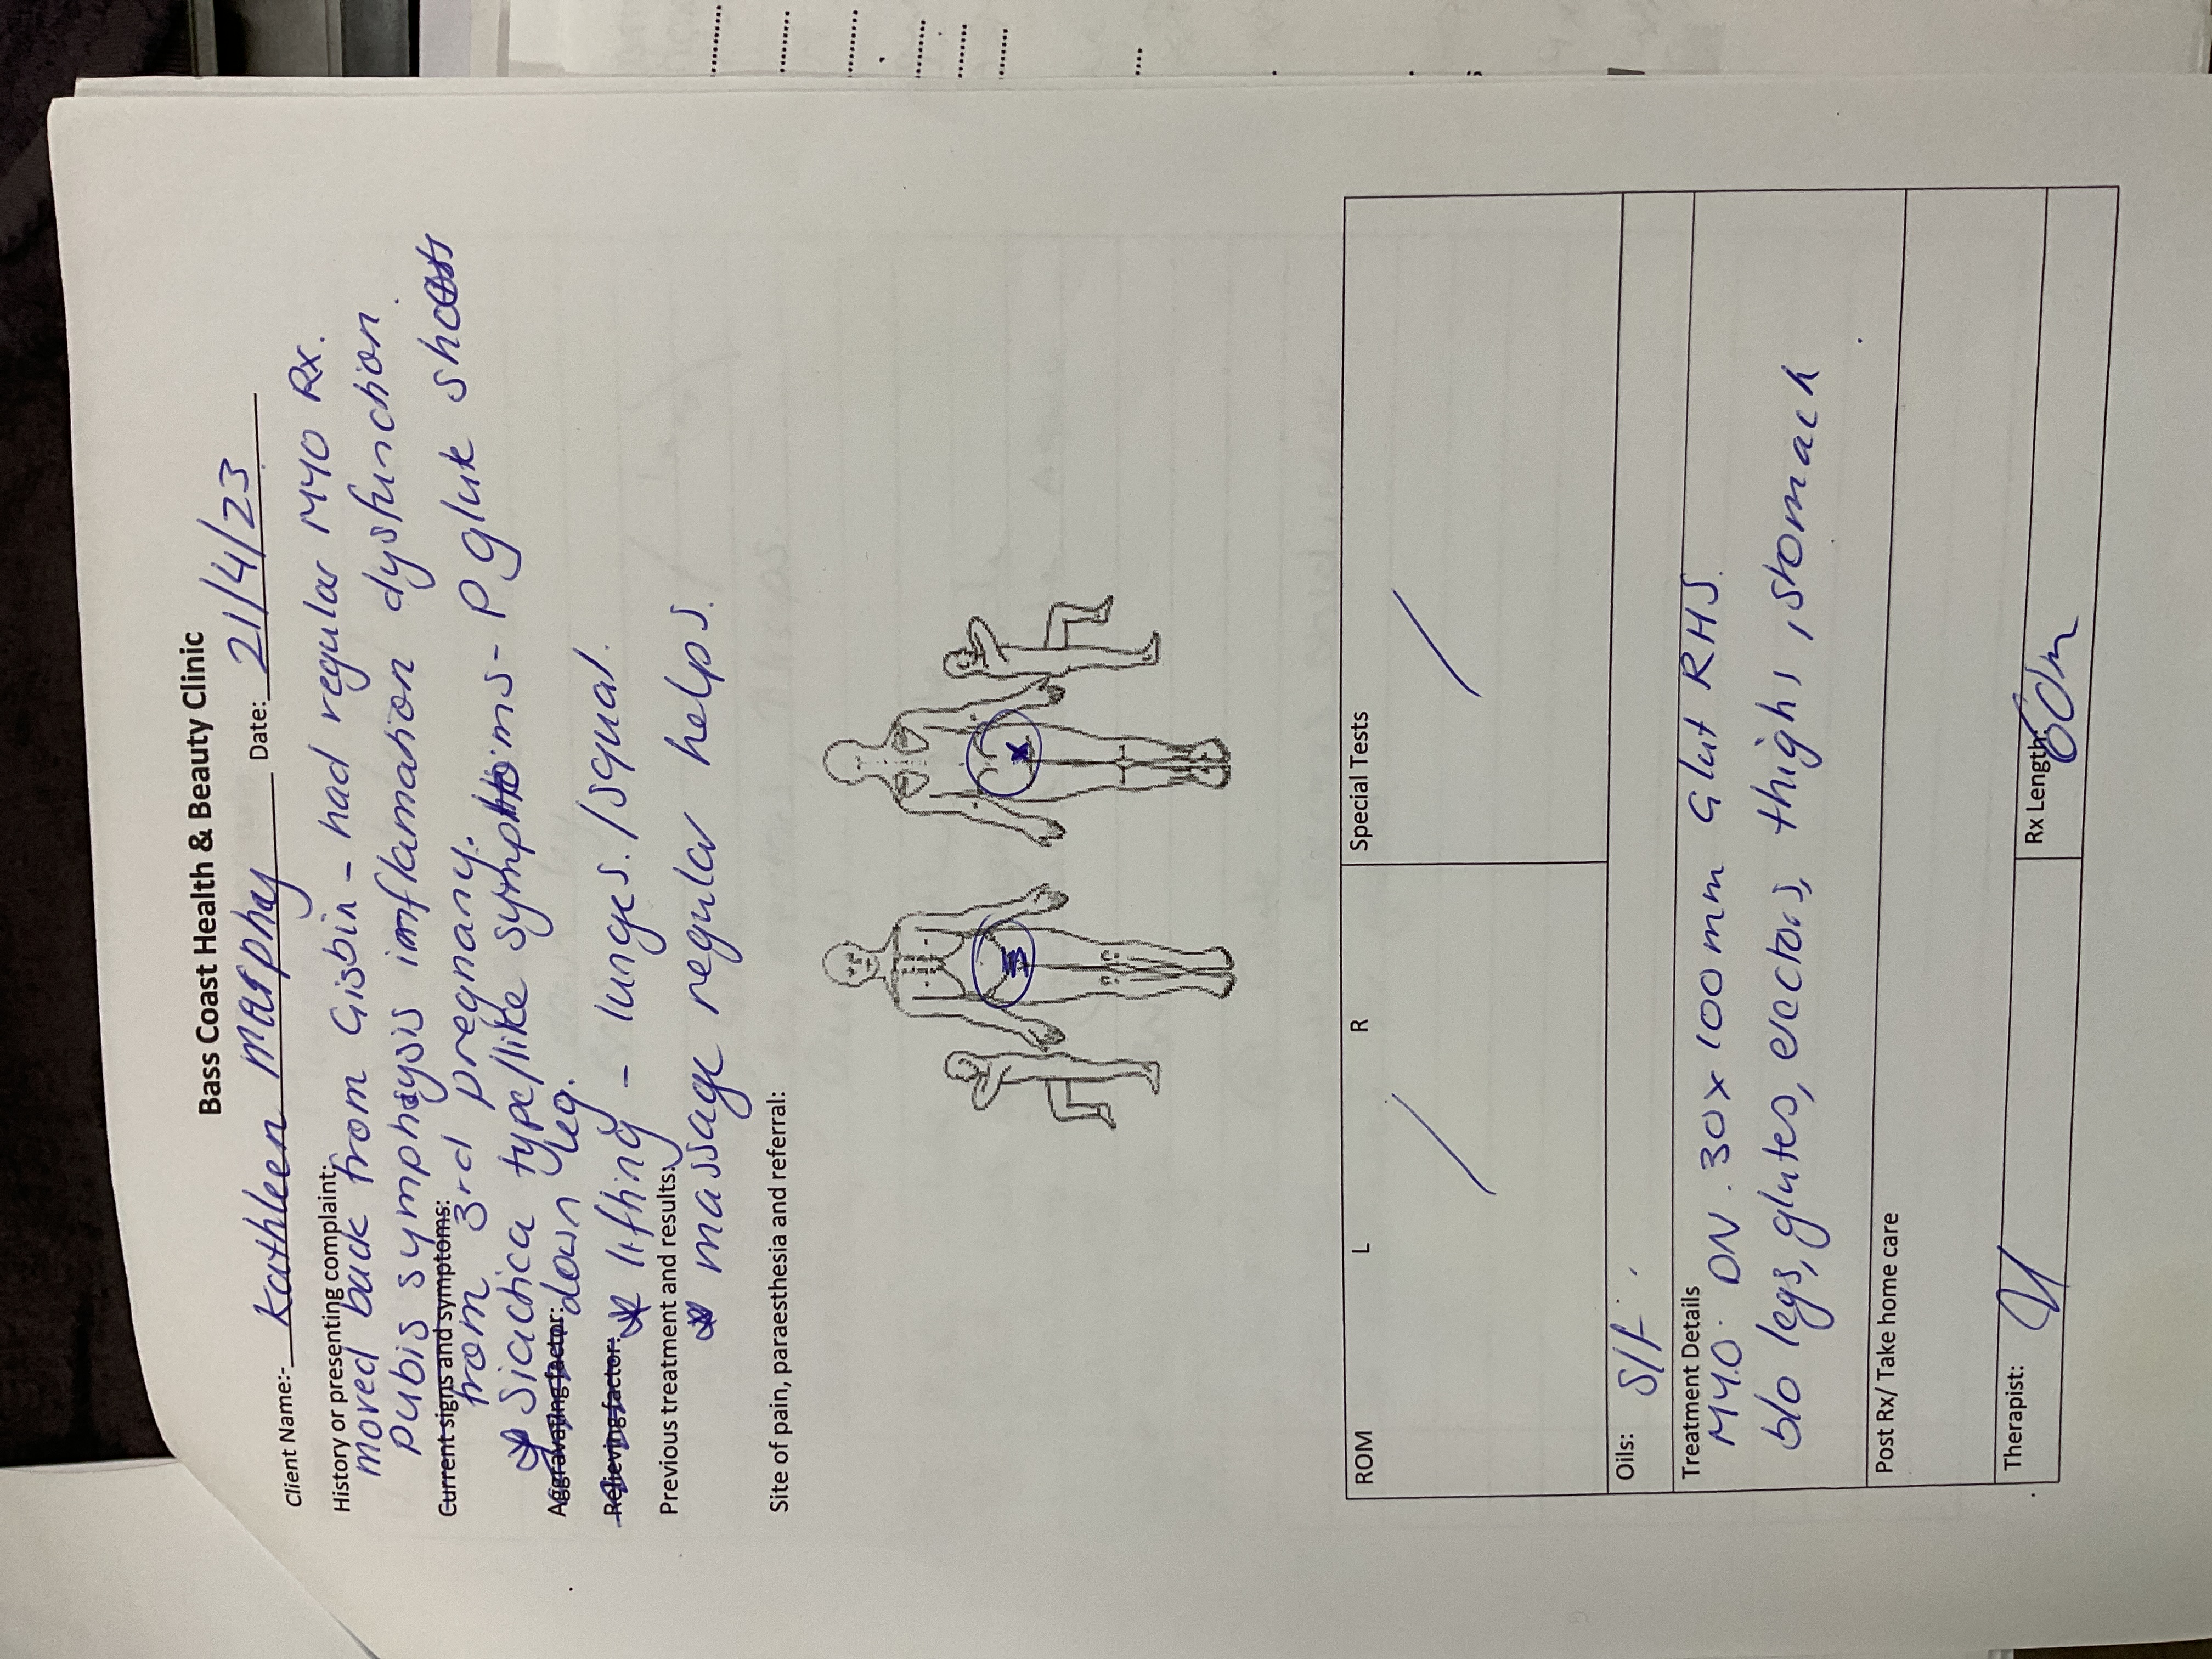 Bass Coast Health & Beauty Clinic
Client Name:- Kathleen Murphy Date: 21/4/23
History or presenting complaint:
moved back from Gisbin - had regular MYO Rx.
pubis symphysis imflamation dysfunction.
Current signs and symptoms:
from 3rd pregnany.
* Siactica type/like symptoms - P glut shoots
Aggravating factor:
down leg.
Relieving factor:
* lifting - lunges./squat.
Previous treatment and results:
* massage regular helps.
Site of pain, paraesthesia and referral:
ROM L R Special Tests
Oils: S/F.
Treatment Details
MYO. DN. 30x100mm Glut RHS.
b/o legs, glutes, erectors, thighs, stomach
Post Rx/ Take home care
Therapist: Rx Length: